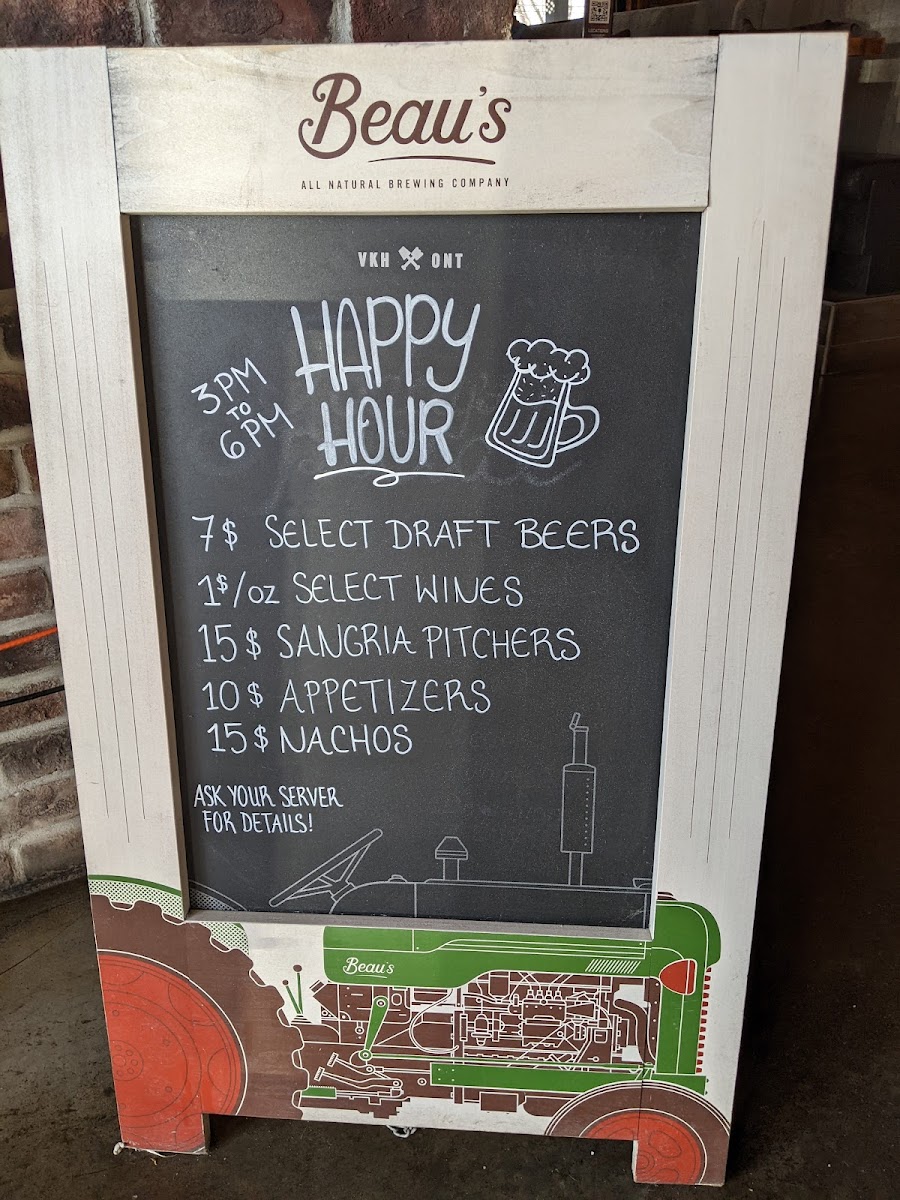 Beau's
ALL NATURAL BREWING COMPANY
VKH ONT
HAPPY
HOUR
3PM
TO
6PM
7$ SELECT DRAFT BEERS
1$/oz SELECT WINES
15$ SANGRIA PITCHERS
10$ APPETIZERS
15$ NACHOS
ASK YOUR SERVER
FOR DETAILS!
Beau's